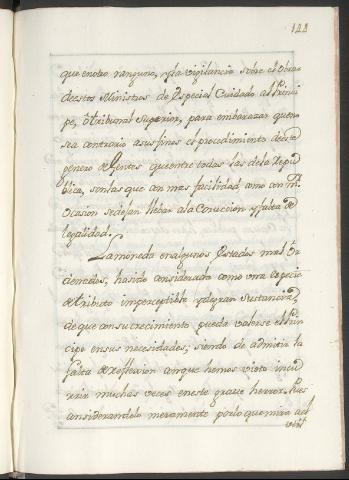 122
que en otro ninguno, y la vigilancia sobre el obrar
de estos Ministros de Especial Cuidado al Prinsi-
pe, ô tribunal Superior, para embarazar que no
sea contrario a sus fines el procedimiento de este
genero de Gentes que entre todas las de la Repu-
blica, son las que con mas facilidad, como con m.
Ocasion se dejan llebar a la Corrucion y falta de
legalidad.
La moneda en algunos Estados mal Or-
denados, ha sido considerada como una especie
de tributo imperceptible y de gran sustancia,
de que con su crecimiento pueda valerse el Prin-
cipe en sus necesidades; siendo de admitir la
falta de reflexion conque hemos visto incur-
rir muchas veces en este grave herror. Pues
considerandolo meramente por lo que mira al